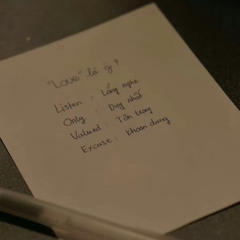 "Love" là gì?
Listen : Lắng nghe
Only : Duy nhất
Valued : Tôn trọng
Excuse : khoan dung